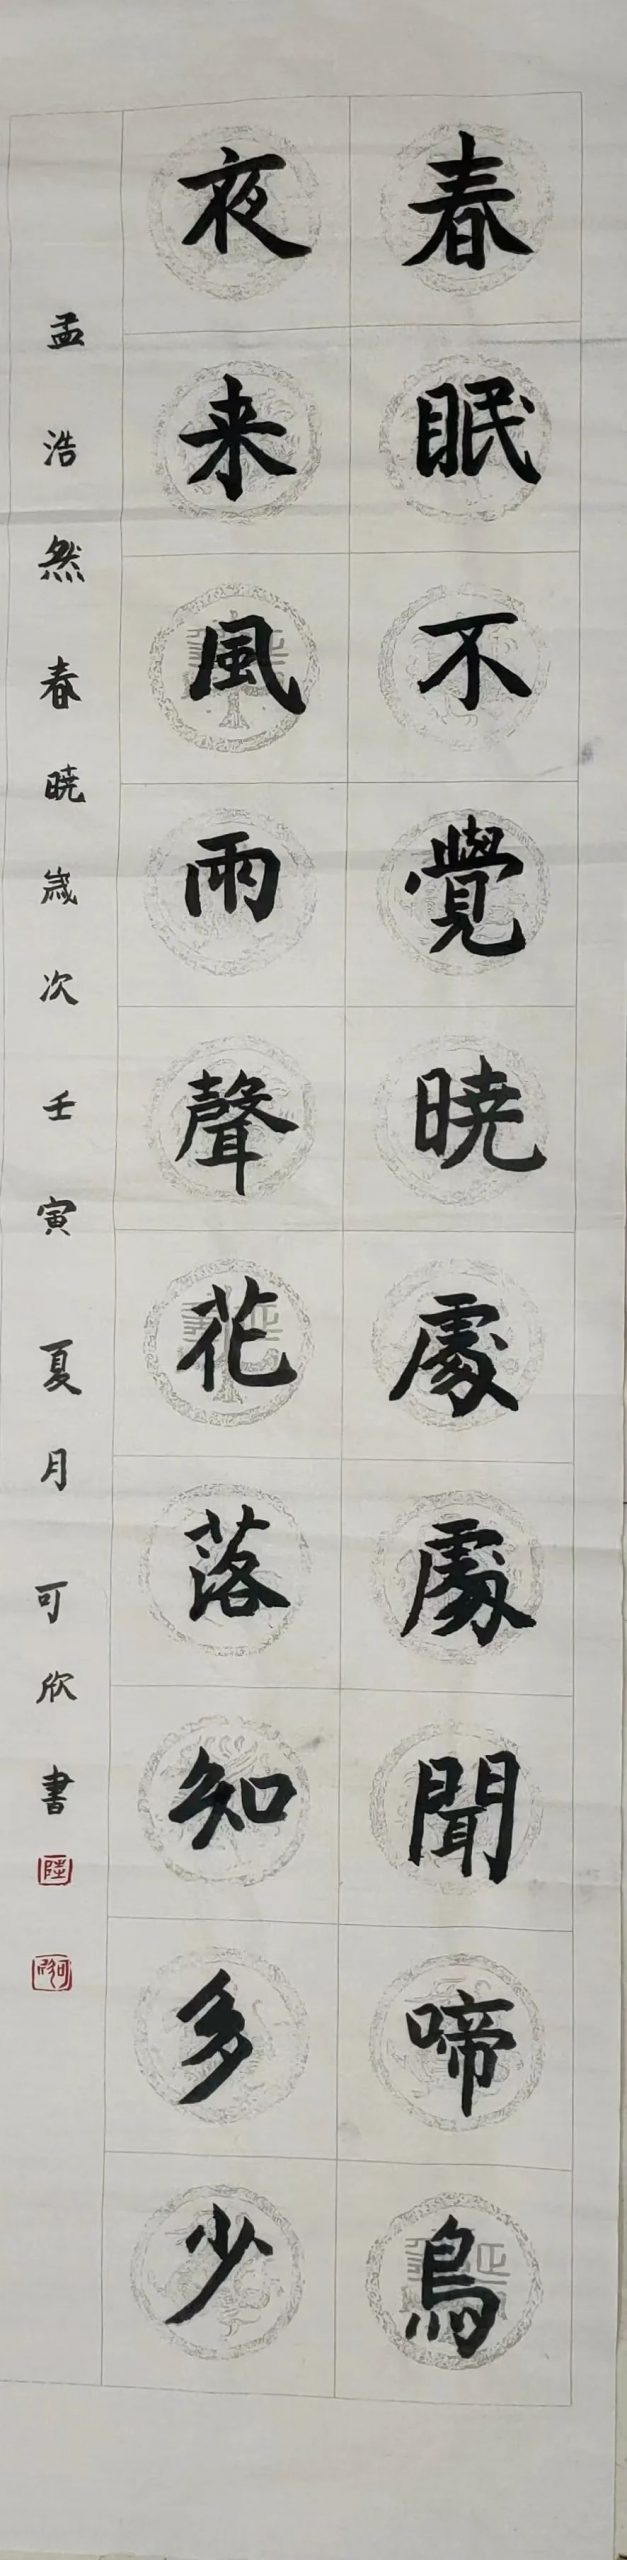 春眠不覺暁處處聞啼鳥
夜来風雨聲花落知多少
孟浩然春暁歲次壬寅夏月可欣書
陸
可欣